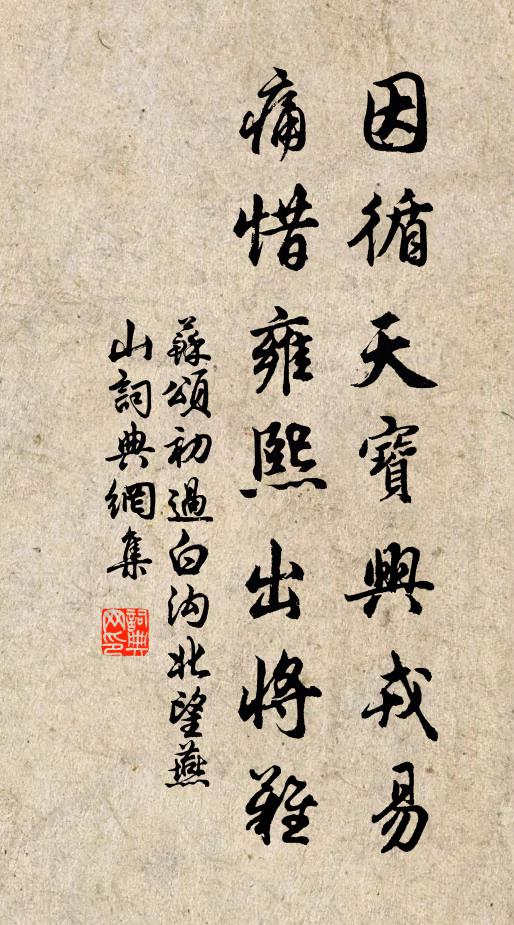 因循天寶興戎易
痛惜雍熙出將難
蘇頌初過白沟北望燕
山詞典網集
詞典
网印